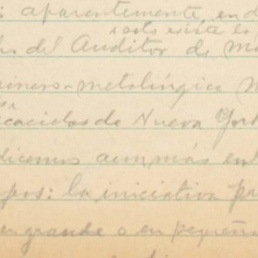 : aparentemente, en d
solo existe e
del Auditor de mi
minero-metalúrgica
cacidos de Nueva York
dicemos aun más en
pos: la iniciativa pr
en grande o en pequeñ